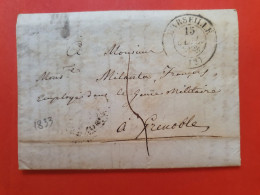 MARSEILLE
15
A Monsieur
Monsr Milautn, François,
Employé dans le Génie Militaire
à Grenoble
1833